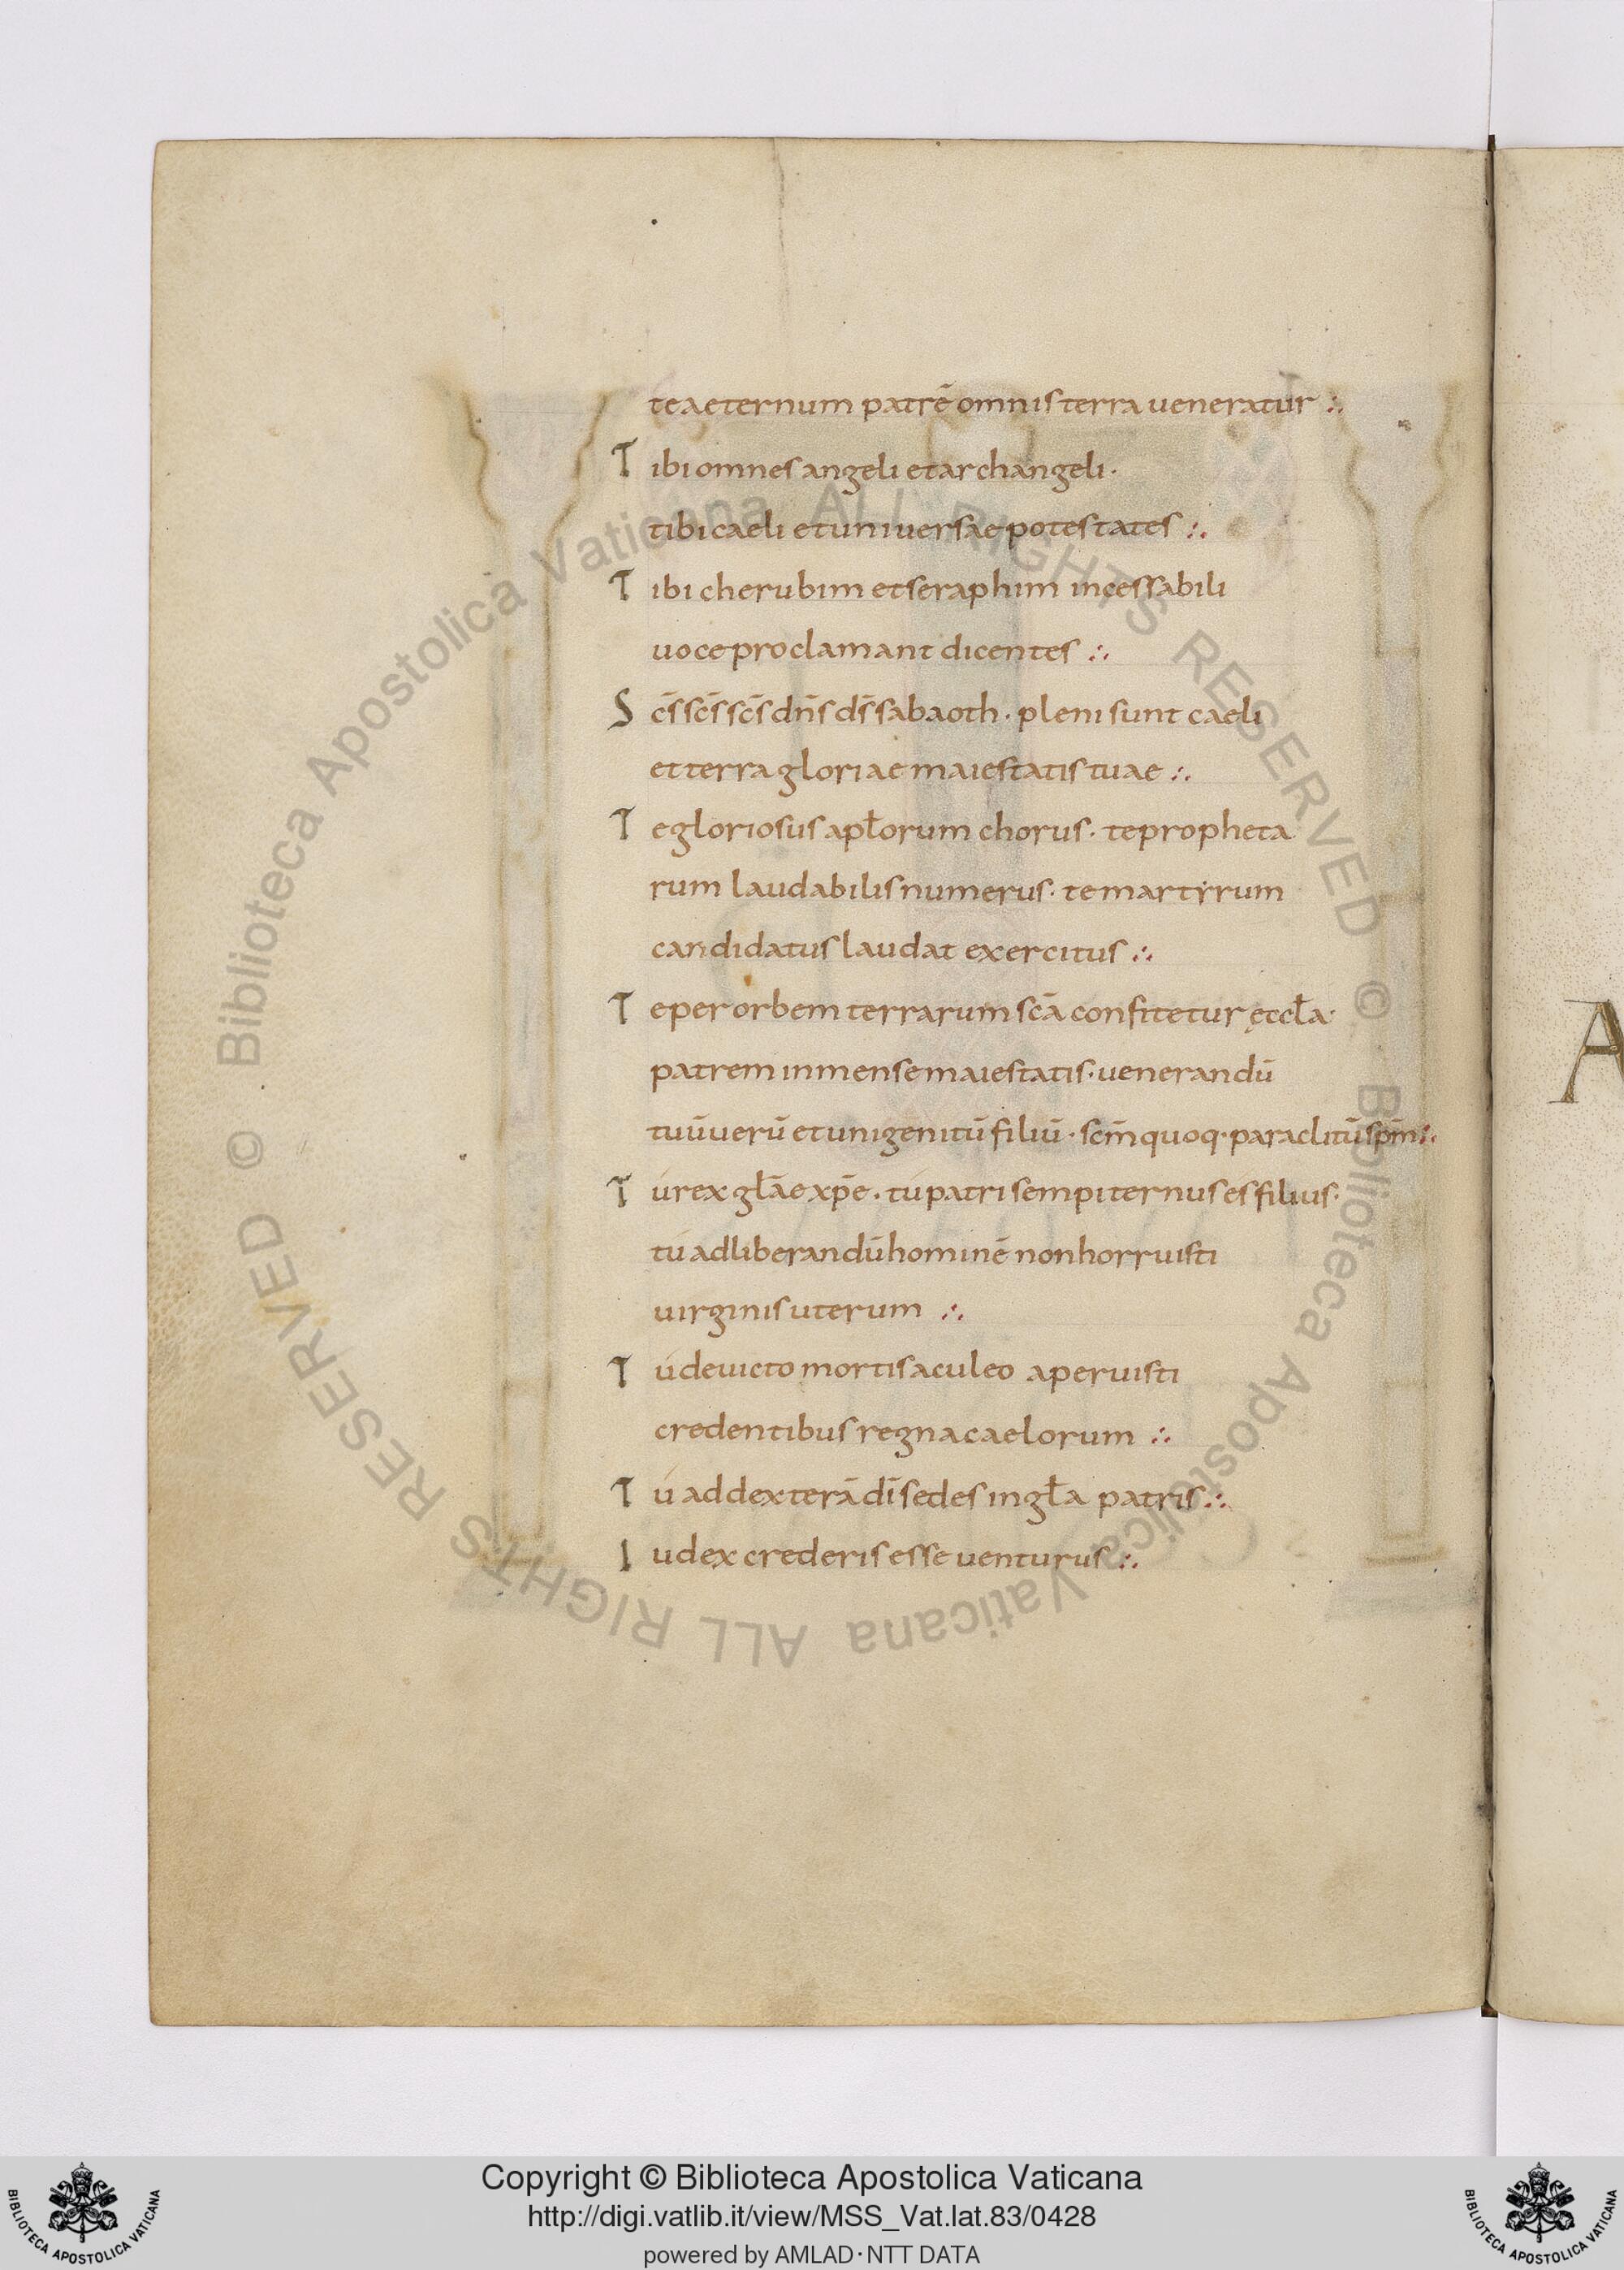 te aeternum patrē omnis terra ueneratur ∴
Tibi omnes angeli et archangeli ·
tibi caeli et uniuersae potestates ∴
Tibi cherubim et seraphim incessabili
uoce proclamant dicentes ∴
Sc̄s sc̄s sc̄s dn̄s ds̄ sabaoth · pleni sunt caeli
et terra gloriae maiestatis tuae ∴
Te gloriosus apłorum chorus · te propheta
rum laudabilis numerus · te martyrum
candidatus laudat exercitus ∴
Te per orbem terrarum scā confitetur ęccła ·
patrem inmense maiestatis · uenerandū
tuū uerū et unigenitū filiū · sc̄m quoq· paraclitū sp̄m ∴
Tú rex głae xp̄e · tú patri sempiternus es filius ·
tú ad liberandū hominē non horruisti
uirginis uterum ∴
Tú deuicto mortis aculeo aperuisti
credentibus regna caelorum ∴
Tú ad dexterā dī sedes in gła patris ∴
Iudex crederis esse uenturus ∴
A
© Biblioteca Apostolica Vaticana ALL RIGHTS RESERVED
© Biblioteca Apostolica Vaticana ALL RIGHTS RESERVED
Copyright © Biblioteca Apostolica Vaticana
http://digi.vatlib.it/view/MSS_Vat.lat.83/0428
powered by AMLAD·NTT DATA
BIBLIOTECA APOSTOLICA VATICANA
BIBLIOTECA APOSTOLICA VATICANA